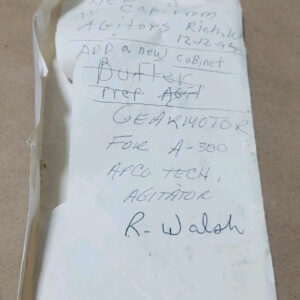 Cap From
Agitors Rich.
ADD a new cabinet
Buffer
Prep Agit
GEARMOTOR
FOR A-300
AFCO TECH.
AGITATOR
R-Walsh